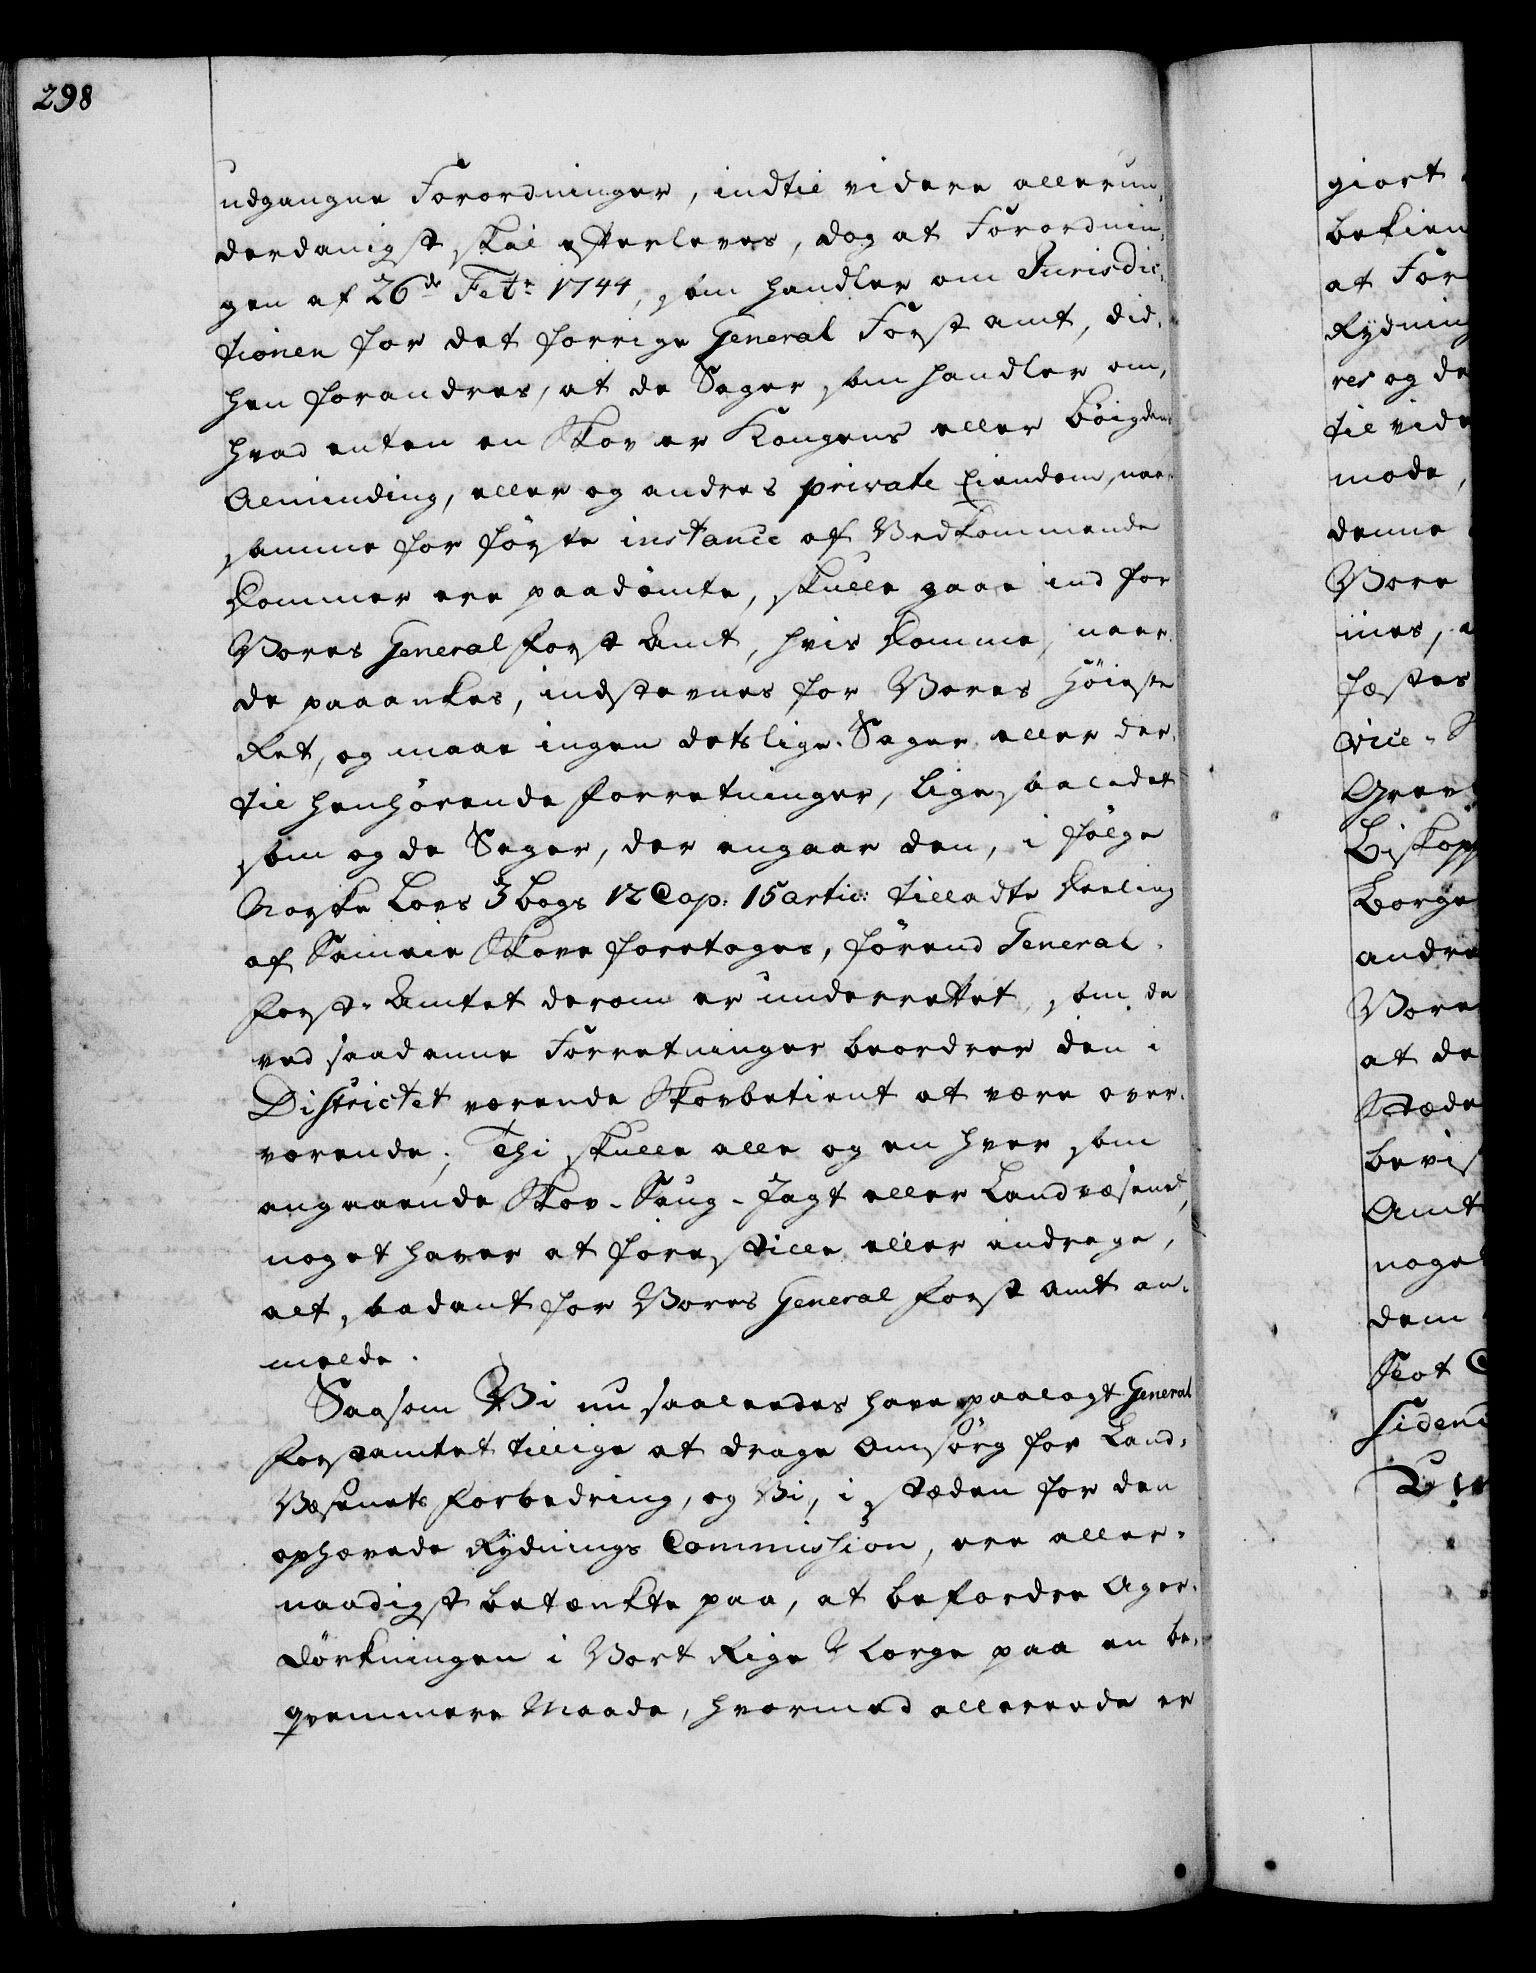 298
udgangne Forordninger, indtil videre allerun-
derdanigst skal efterleves, dog at Forordnin-
gen af 26de Febr: 1744, som handler om Jurisdic-
tionen for det forrige General Forst amt, did-
hen forandres, at de Sager som handler om,
hvad enten en Skov er Kongens eller böigdens
Alminding, eller og andres private Eiendom, naar
samme for förste instance af Vedkommende
Dommer ere paadömte, skulle gaae ind for
Vores General Forst Amt, hvis Domme, naar
de paaankes, indstevnes for Vores Höieste
Ret, og maae ingen detslige Sager eller der-
til henhörende Forretninger, lige saaledet
som og de Sager, der angaar den, i fölge
Norske Lovs 3 bogs 12 Cap: 15 artic: tilladte Deeling
af Sameie Skove foretages, förend General-
Forst-Amtet derom er underrettet, som da
ved saadanne Forretninger beordrer den i
Districtet værende Skovbetient at være over-
værende; Thi skulle alle og en hver som
angaaende Skov- Saug- Jagt eller Landvæsenet,
noget haver at forestille eller andrage,
alt saadant for Vores General Forst amt an-
melde.
Saasom Vi nu saaledes have paalagt General
Forstamtet tillige at drage Omsorg for Land-
Væsenets Forbedring, og Vi, i stæden for den
ophævede Rydnings Commission, ere aller-
naadigst betænkte paa, at befordre Ager-
Dörkningen i Vort Rige Norge paa en be-
qvemmere Maade, hvormed allerede er
giort
bekien
at For
Rydning
res og de
til vide
mode,
denne
Vore
ines, a
fæstes
Vice-S
Grev
Biskopp
Borge
andre
Vore
at de
Stæde
bevis
Amt
noget
dem
Slot C
siden